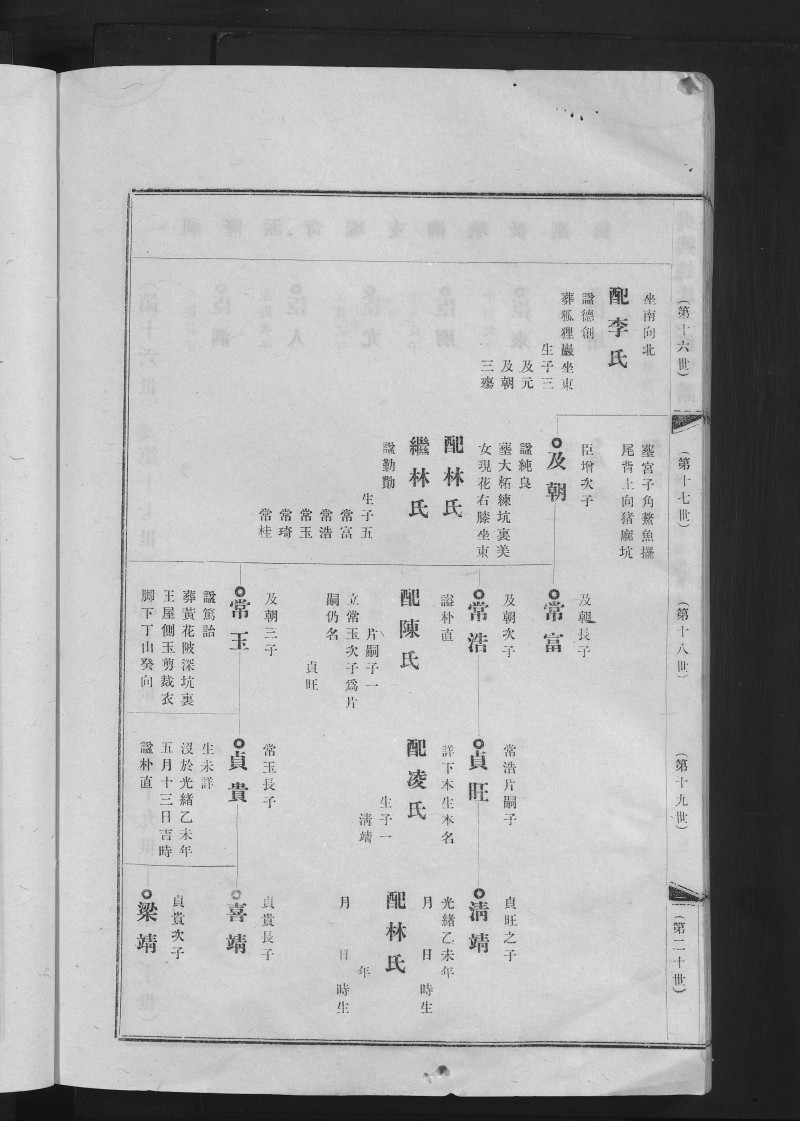 (第十六世)
坐南向北
配李氏
諡德創
葬狐狸巖坐東
生子三
及元
及朝
三殤
(第十七世)
塟宮子角鰲魚擺
尾背上向猪麻坑
及朝
臣增次子
諡純良
塟大柘練坑裏美
女現花右膝坐東
配林氏
繼林氏
諡勤勤
生子五
常富
常浩
常玉
常琦
常桂
(第十八世)
及朝長子
常富
及朝次子
常浩
諡朴直
配陳氏
片嗣子一
立常玉次子爲片
嗣仍名
貞旺
及朝三子
常玉
諡篤詒
葬黃花陂深坑裏
王屋側玉剪裁衣
脚下丁山癸向
(第十九世)
常浩片嗣子
貞旺
詳下本生本名
配凌氏
生子一
淸靖
常玉長子
貞貴
生未詳
沒於光緒乙未年
五月十三日吉時
諡朴直
(第二十世)
貞旺之子
淸靖
光緒乙未年
月 日時生
配林氏
年
月 日時生
貞貴長子
喜靖
貞貴次子
梁靖